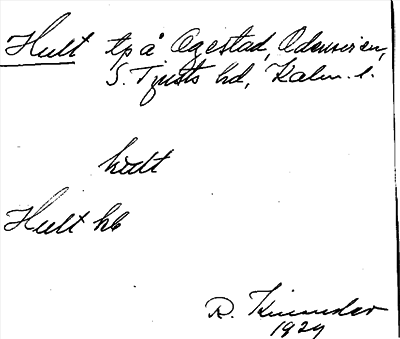 Hult tp å Ogestad, Odensvi sn,
S. Tjusts hd, Kalm. l.
hült
Hult hb
R. Kinander
1929